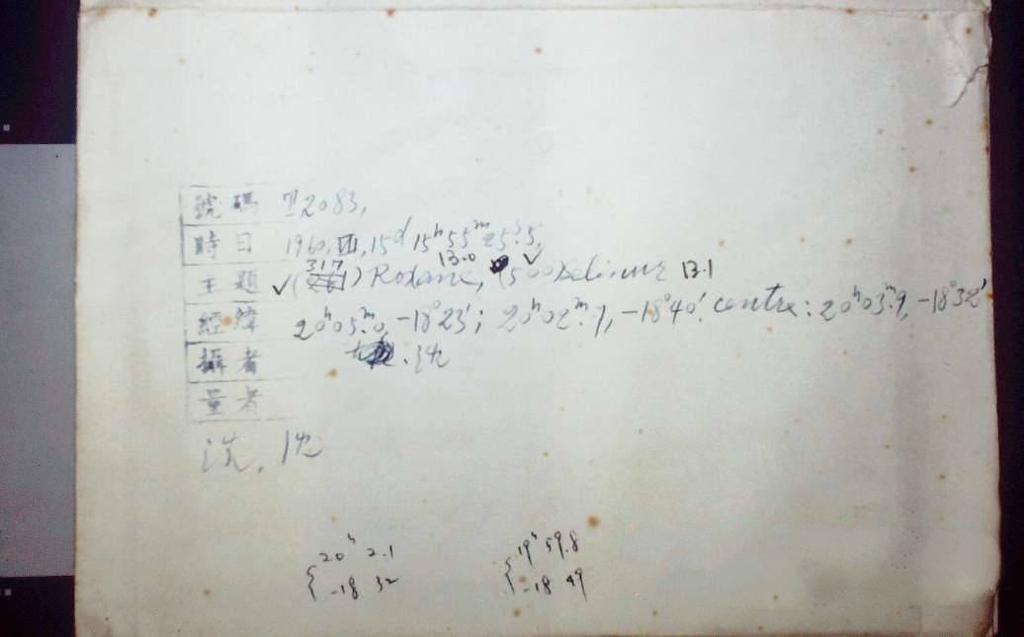 號碼 2083,
時日 1960, 15d 15h 55m 25s.5,
主題 ✓(317) Roxane, 13.0 ✓ Selinur 13.1
經緯 20h05m.0, -18°23′; 20h02m.7, -18°40′. centre: 20h03m.9, -18°32′
攝者
量者
洗.
20h 2.1
-18 32
19h 59.8
-18 49